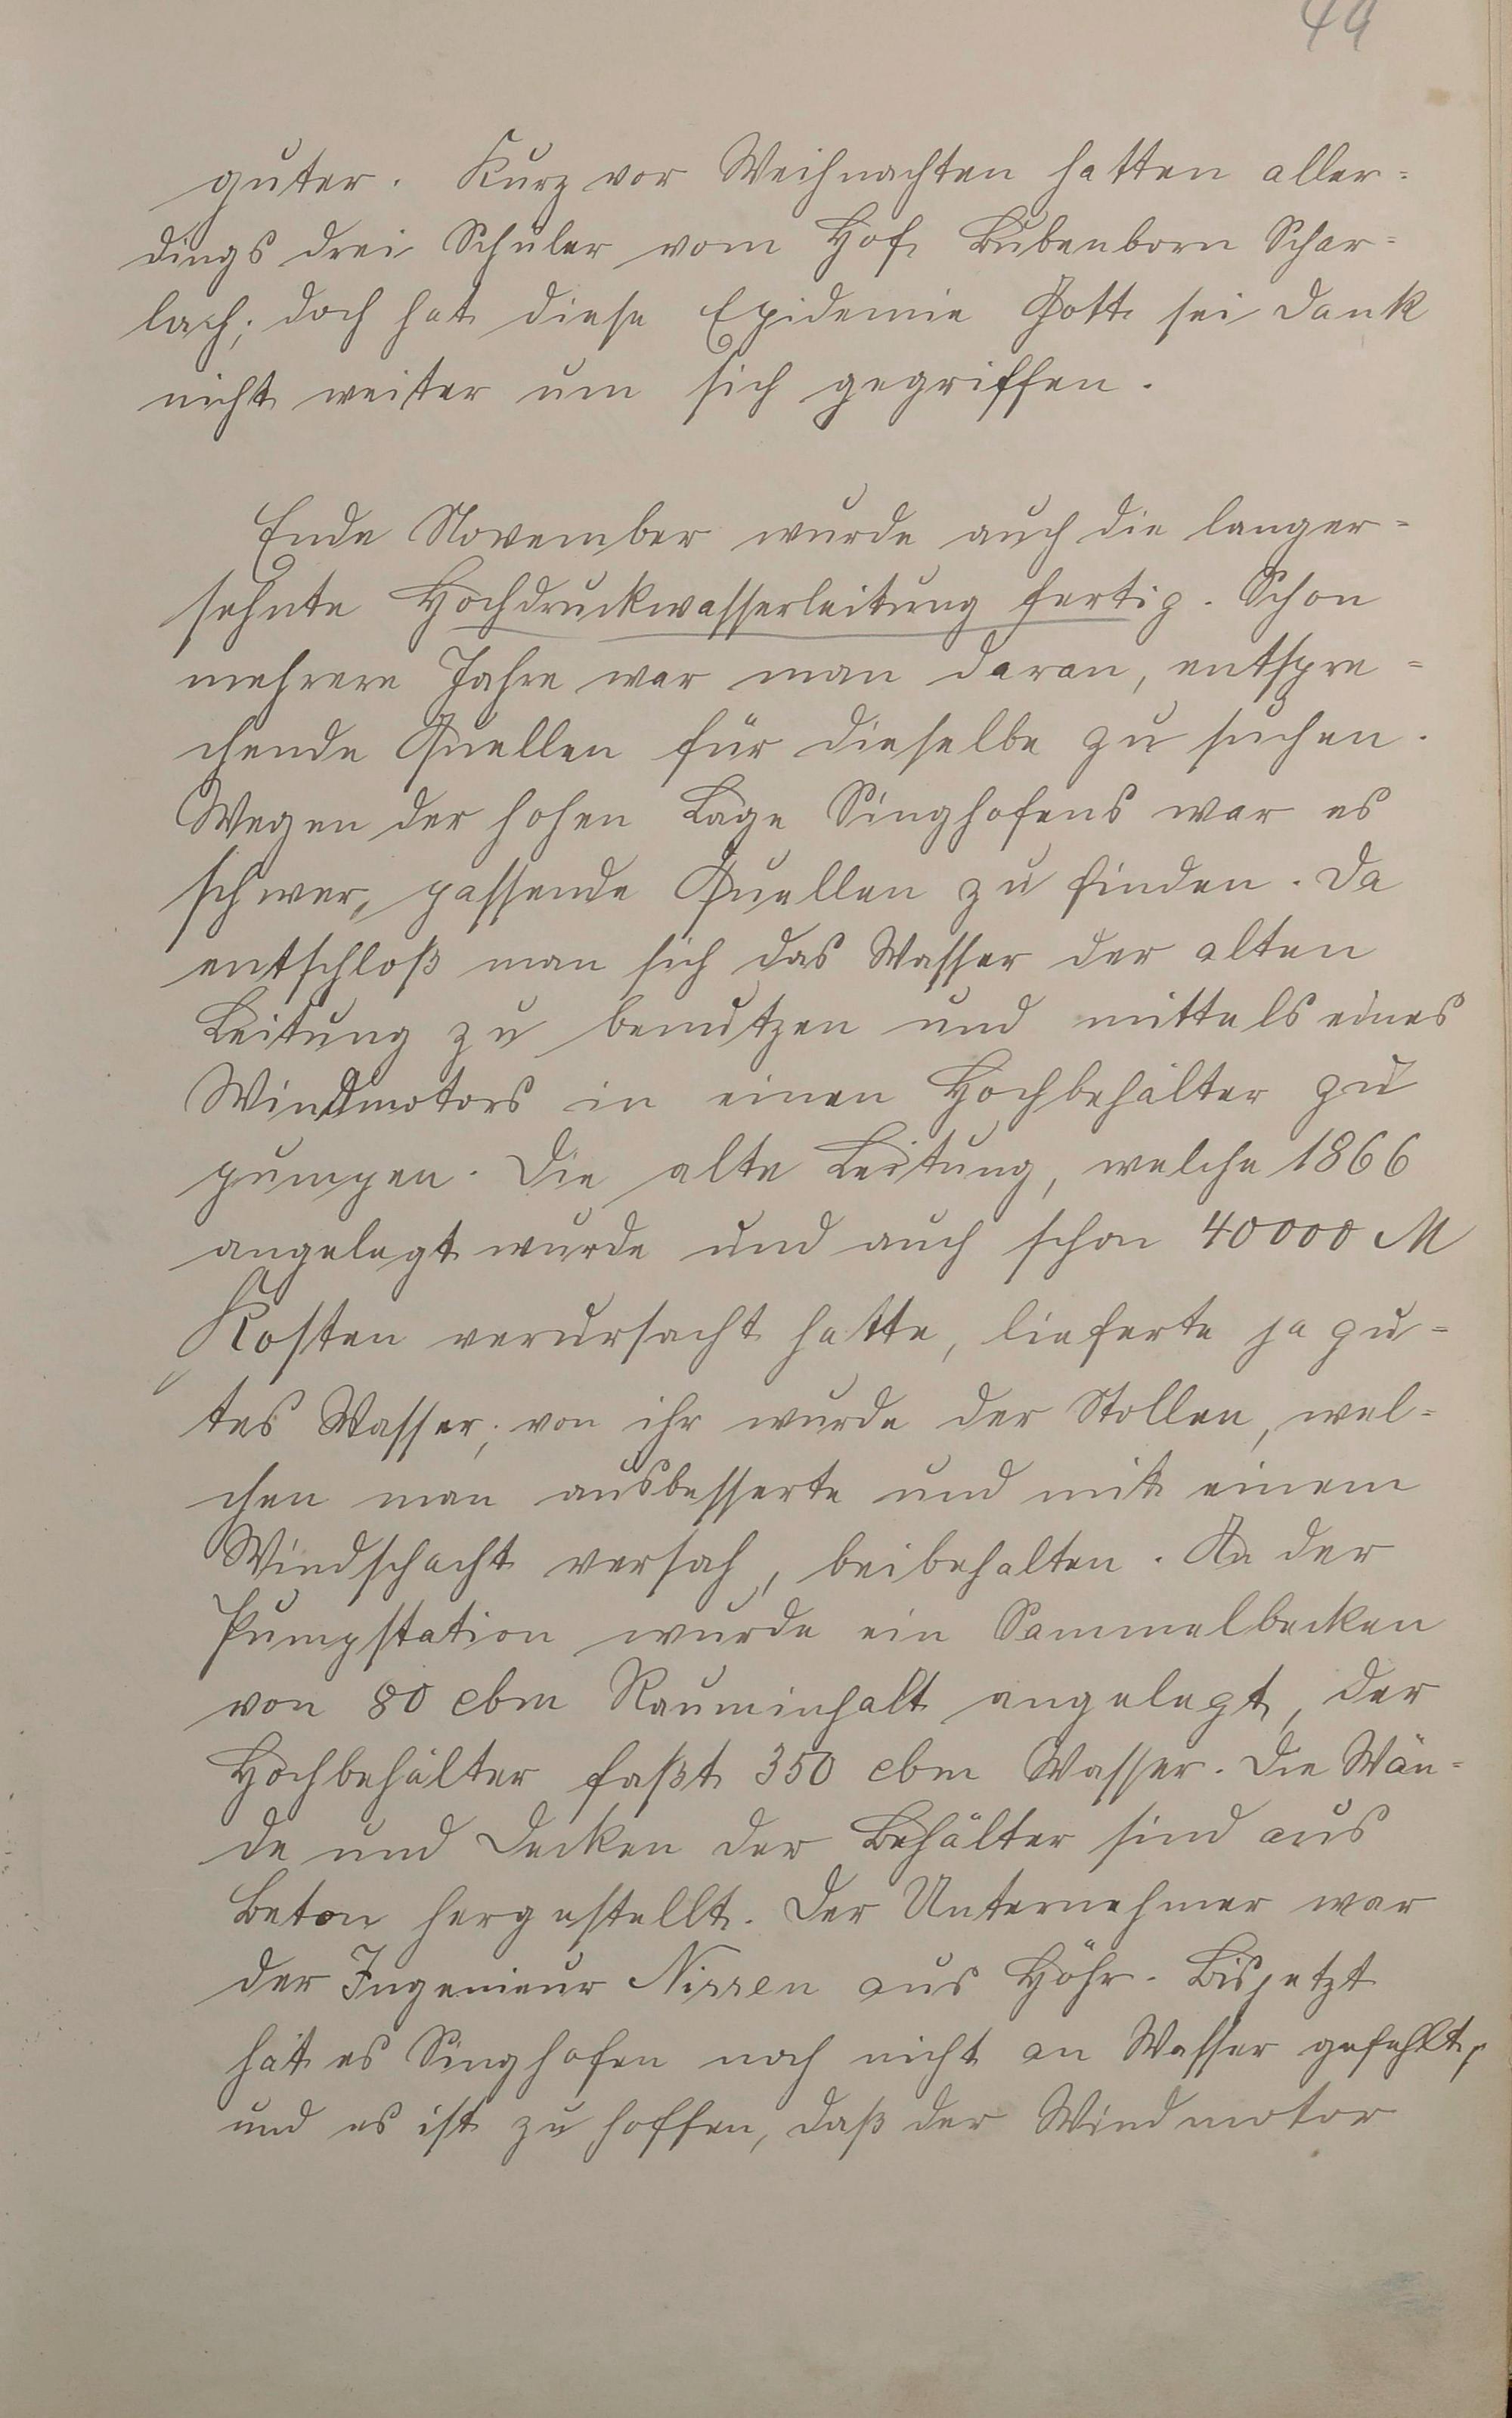 44
guter. Kurz vor Weihnachten hatten aller=
dings drei Schüler vom Hof Bubenborn Schar=
lach; doch hat diese Epidemie Gott sei Dank
nicht weiter um sich gegriffen.
Ende November wurde auch die langer=
sehnte Hochdruckwasserleitung fertig. Schon
mehrere Jahre war man daran, entspre=
chende Quellen für dieselbe zu suchen.
Wegen der hohen Lage Singhofens war es
schwer, passende Quellen zu finden. Da
entschloß man sich das Wasser der alten
Leitung zu benutzen und mittels eines
Windmotors in einen Hochbehälter zu
pumpen. Die alte Leitung, welche 1866
angelegt wurde und auch schon 40000 M
Kosten verursacht hatte, lieferte ja gu=
tes Wasser; von ihr wurde der Stollen, wel=
chen man ausbesserte und mit einem
Windschacht versah, beibehalten. An der
Pumpstation wurde ein Sammelbecken
von 80 cbm Rauminhalt angelegt, der
Hochbehälter faßt 350 cbm Wasser. Die Wän=
de und Decken der Behälter sind aus
Beton hergestellt. Der Unternehmer war
der Ingenieur Nissen aus Höhr. Bis jetzt
hat es Singhofen noch nicht an Wasser gefehlt,
und es ist zu hoffen, daß der Windmotor